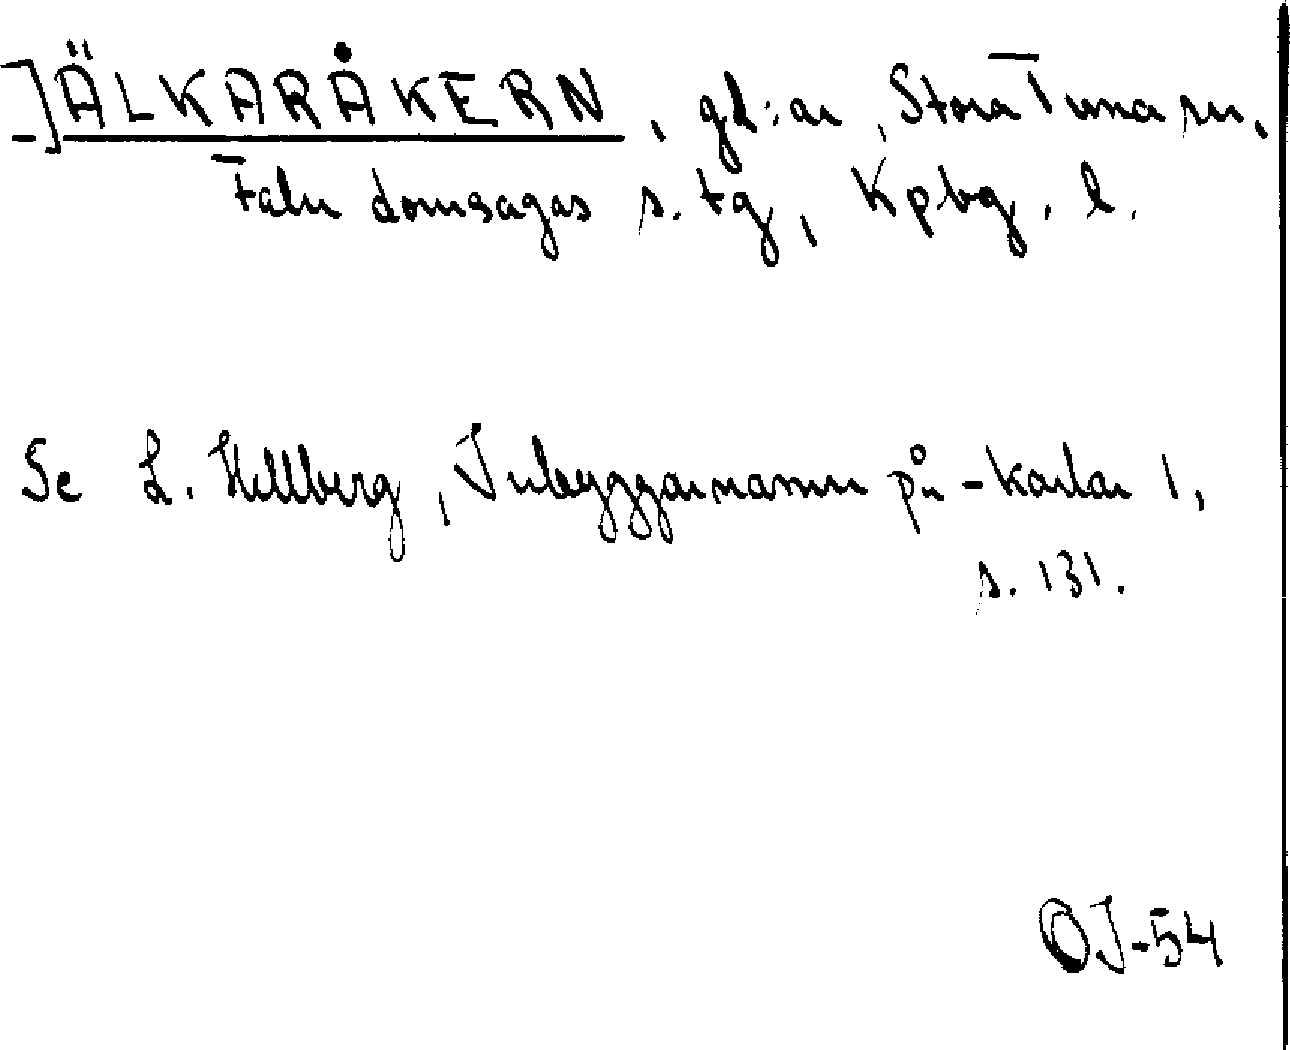 ]ÄLKARÅKERN, gd:ar, Stora Tuna sn,
Falu domsagas s. tg, Kpbg. l.
Se L. Hellberg, Inbyggarnamn på -karlar 1,
s. 131.
OJ-54